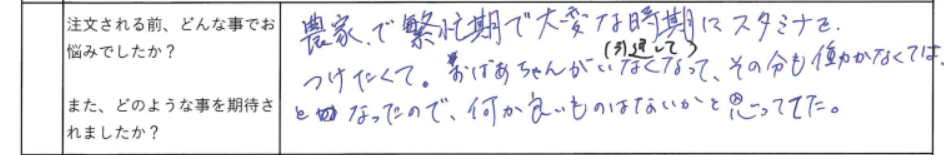 注文される前、どんな事でお
悩みでしたか?
また、どのような事を期待さ
れましたか?
農家で繁忙期で大変な時期にスタミナを
つけたくて。おばあちゃんが(引退して)いなくなって、その分も働かなくては、
となったので、何か良いものはないかと思ってた。